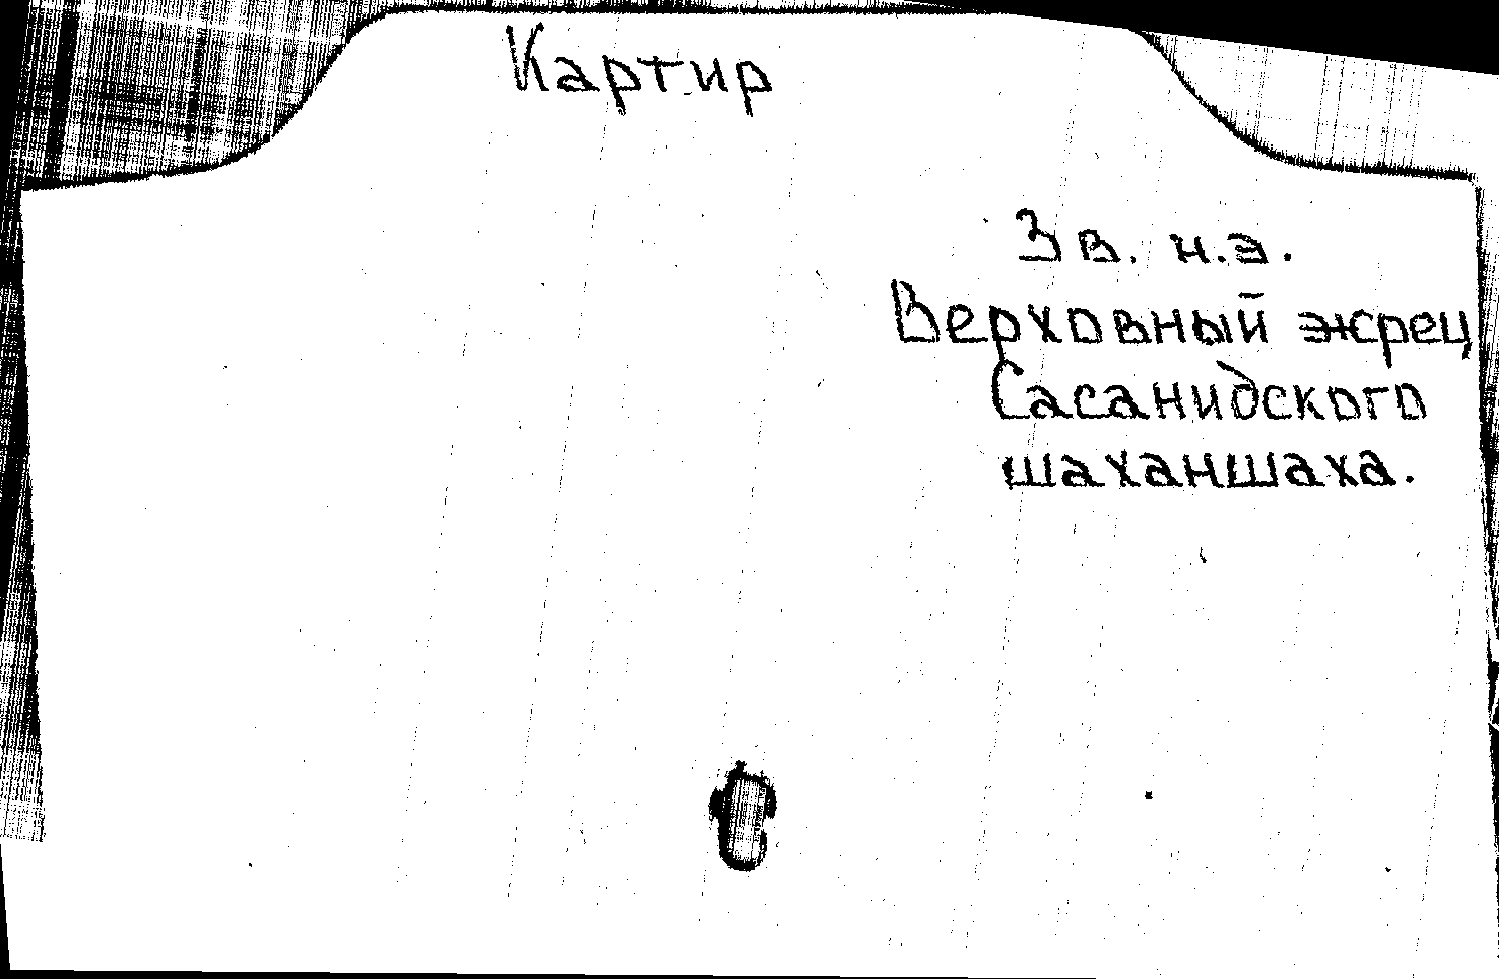 Картир
3 в. н.э.
Верховный жрец
Сасанидского
шаханшаха.